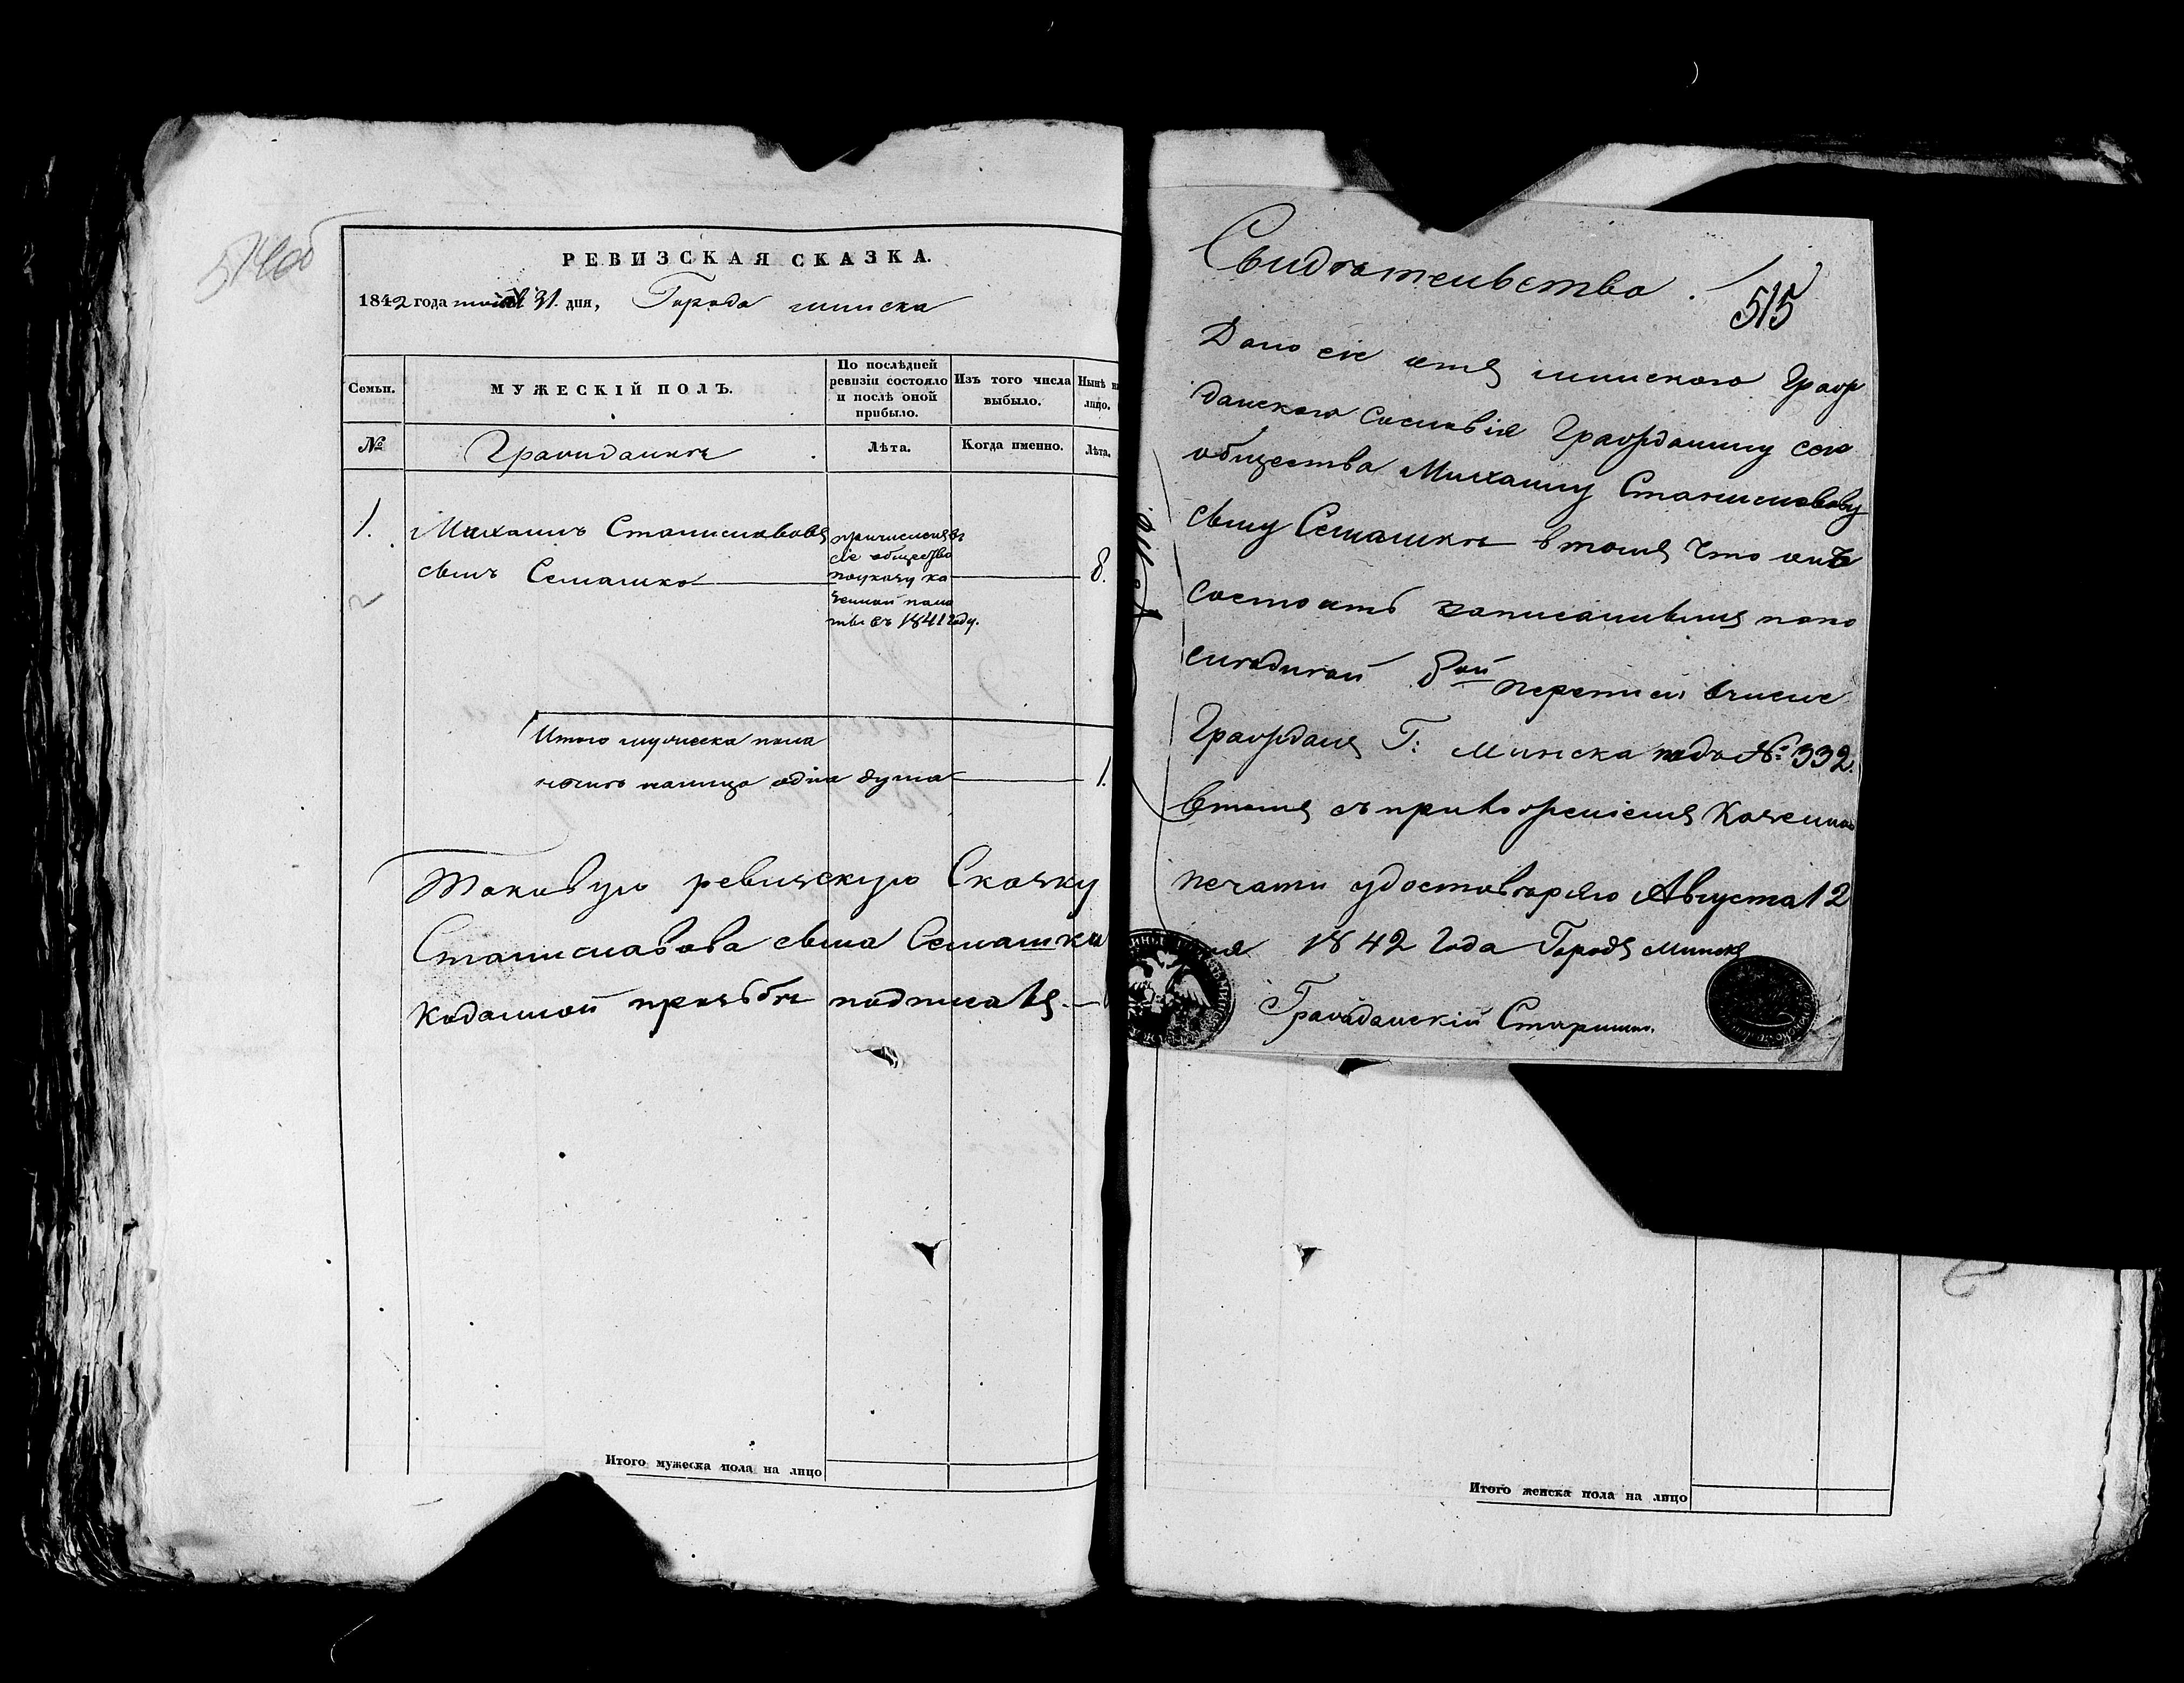 514об
РЕВИЗСКАЯ СКАЗКА.
1842 года маія 31. дня, Города минска
Семьи.
МУЖЕСКІЙ ПОЛЪ.
По послѣдней
ревизіи состояло
и послѣ оной
прибыло.
Изъ того числа
выбыло.
Нынѣ на
лицо.
№
Граждане
Лѣта.
Когда именно.
Лѣта.
1.
Михаилъ Станиславовъ
сынъ Семашко
причисленъ въ
сіе общество
по указу ка
зенной пала
ты въ 1841 году.
8.
2
Итого мужеска пола
налицо одна душа
1.
Таковую ревизскую Сказку
Станиславова сына Семашки
Коданной прозьбѣ подписалъ
Итого мужеска пола на лицо
Свидѣтельство.
515
Дано сіе отъ минского Граж
данского Сословія Гражданину сего
общества Михаилу Станиславову
сыну Семашкѣ втомъ что онъ
состоитъ записаннымъ попо
слѣдней 8ой переписи вчисле
Гражданъ Г: Минска подъ №: 332.
Втомъ съ приложеніемъ Казенной
печати удостовѣряю Августа 12
дня 1842 года Городъ Минскъ
Гражданскій Старшина.
Итого женска пола на лицо